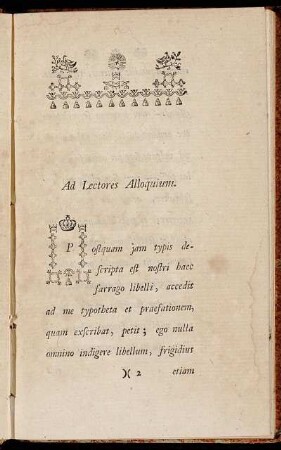 Ad Lectores Alloquium.
Postquam jam typis de-
scripta est nostri haec
farrago libelli, accedit
ad me typotheta et praefationem,
quam exscribat, petit; ego nulla
omnino indigere libellum, frigidius
)( 2 etiam